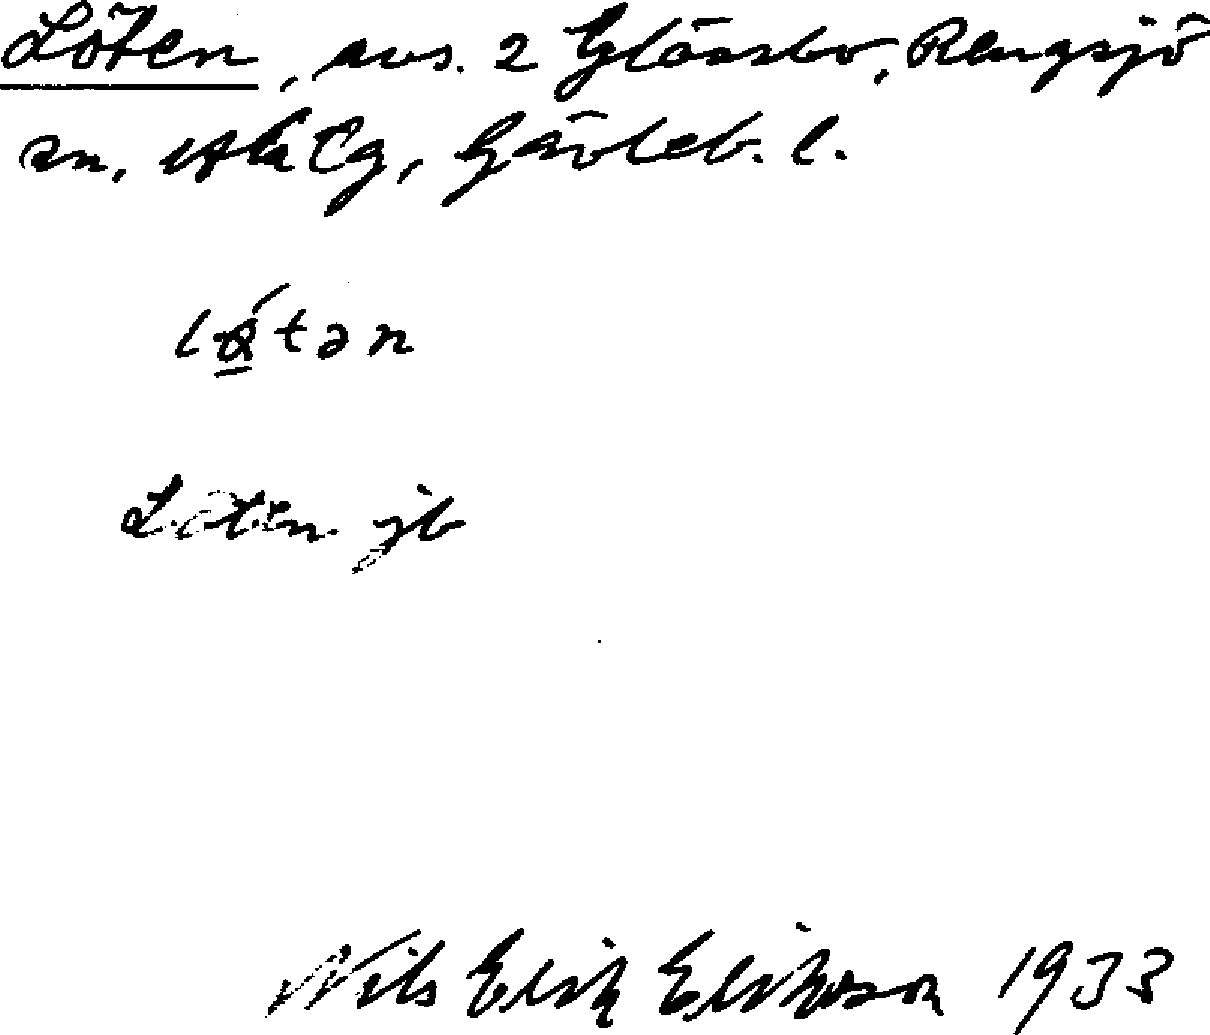 Löten, avs. 2 Glössbo, Rengsjö
sn, Häg, Gävleb. l.
lǿtən
Löten jb
Nils Erik Erikson 1933